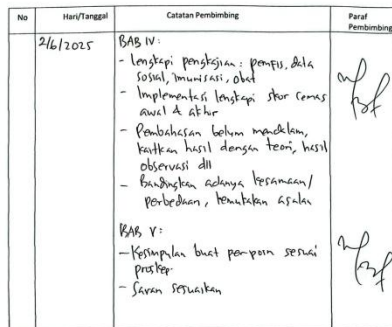 No
Hari/Tanggal
Catatan Pembimbing
Paraf
Pembimbing
2/6/2025
BAB IV:
- Lengkapi pengkajian: pemfis, data
sosial, imunisasi, obat
- Implementasi lengkapi skor cemas
awal & akhir
- Pembahasan belum mendalam,
kaitkan hasil dengan teori, hasil
observasi dll
- Bandingkan adanya kesamaan/
perbedaan, kemukakan
BAB V:
- Kesimpulan buat per poin sesuai
proskep.
- Saran sesuaikan